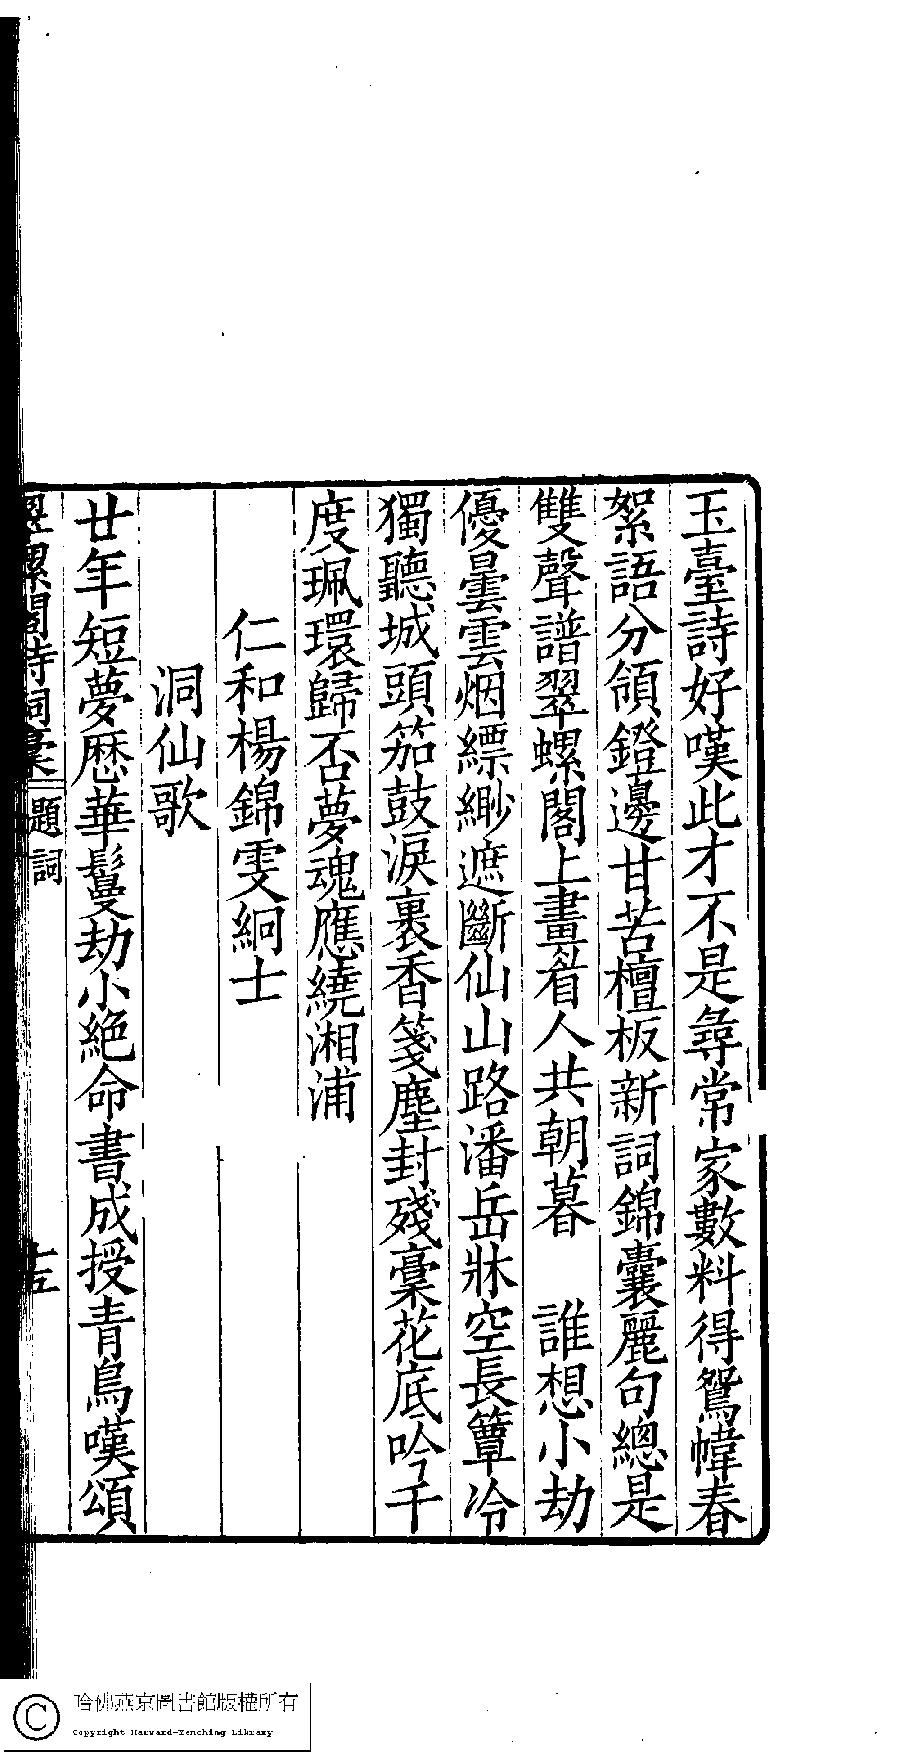 玉臺詩好嘆此才不是尋常家數料得鴛幃春
絮語分領鐙邊甘苦檀板新詞錦囊麗句總是
雙聲譜翠螺閣上畫眉人共朝暮　誰想小劫
優曇雲烟縹緲遮斷仙山路潘岳牀空長簟冷
獨聽城頭笳鼓淚裹香箋塵封殘稾花底吟千
度珮環歸否夢魂應繞湘浦
仁和楊錦雯絅士
洞仙歌
廿年短夢歷華鬘劫小絕命書成授青鳥嘆頌
翠螺閣詩詞稾 題詞 十五
哈佛燕京圖書館版權所有
Copyright Harvard-Yenching Library